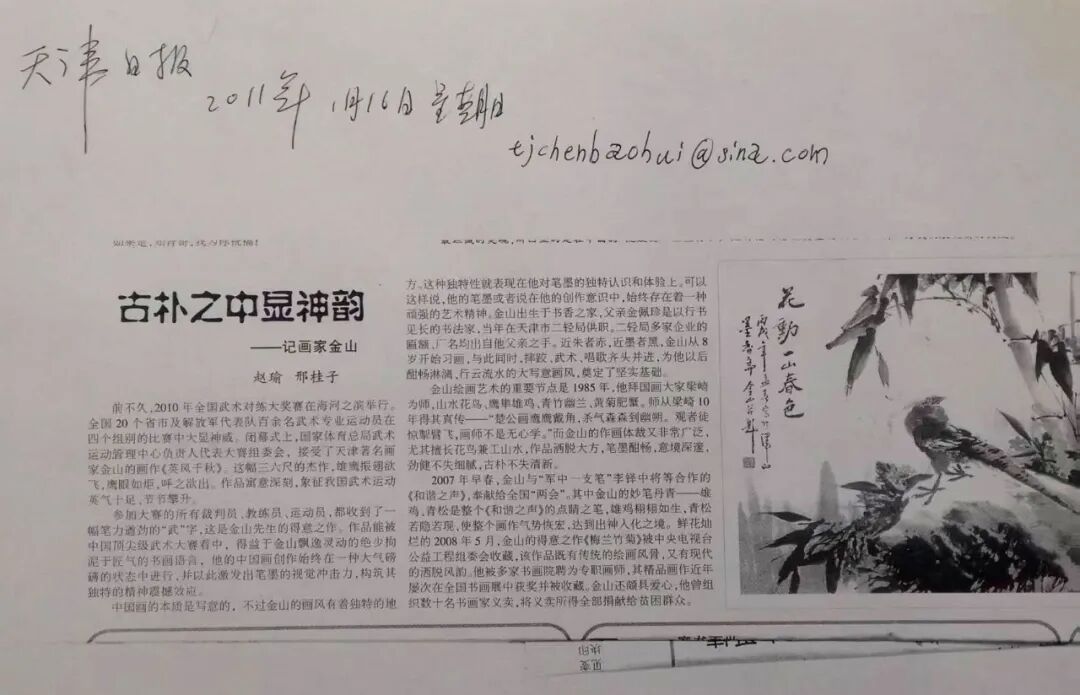 天津日报
2011年 1月16日 星期日
tjchenbaohui@sina.com
古朴之中显神韵
——记画家金山
赵瑜 邢桂子
前不久,2010年全国武术对练大奖赛在海河之滨举行。
全国20个省市及解放军代表队百余名武术专业运动员在
四个组别的比赛中大显神威。闭幕式上,国家体育总局武术
运动管理中心负责人代表大赛组委会,接受了天津著名画
家金山的画作《英风千秋》。这幅三六尺的杰作,雄鹰振翅欲
飞,鹰眼如炬,呼之欲出。作品寓意深刻,象征我国武术运动
英气十足,节节攀升。
参加大赛的所有裁判员、教练员、运动员,都收到了一
幅笔力遒劲的“武”字,这是金山先生的得意之作。作品能被
中国顶尖级武术大赛看中,得益于金山飘逸灵动的绝少拘
泥于匠气的书画语言,他的中国画创作始终在一种大气磅
礴的状态中进行,并以此激发出笔墨的视觉冲击力,构筑其
独特的精神震撼效应。
中国画的本质是写意的,不过金山的画风有着独特的地
方。这种独特性就表现在他对笔墨的独特认识和体验上。可以
这样说,他的笔墨或者说在他的创作意识中,始终存在着一种
顽强的艺术精神。金山出生于书香之家,父亲金佩珍是以行书
见长的书法家,当年在天津市二轻局供职。二轻局多家企业的
匾额、厂名均出自他父亲之手。近朱者赤,近墨者黑,金山从8
岁开始习画,与此同时,摔跤、武术、唱歌齐头并进,为他以后
酣畅淋漓,行云流水的大写意画风,奠定了坚实基础。
金山绘画艺术的重要节点是1985年,他拜国画大家梁崎
为师,山水花鸟、鹰隼雄鸡、青竹幽兰、黄菊肥蟹。师从梁崎10
年得其真传——“楚公画鹰鹰戴角,杀气森森到幽朔。观者徒
惊掣臂飞,画师不是无心学。”而金山的作画体裁又非常广泛,
尤其擅长花鸟兼工山水,作品洒脱大方,笔墨酣畅,意境深邃,
劲健不失细腻,古朴不失清新。
2007年早春,金山与“军中一支笔”李铎中将等合作的
《和谐之声》,奉献给全国“两会”。其中金山的妙笔丹青——雄
鸡、青松是整个《和谐之声》的点睛之笔,雄鸡栩栩如生,青松
若隐若现,使整个画作气势恢宏,达到出神入化之境。鲜花灿
烂的2008年5月,金山的得意之作《梅兰竹菊》被中央电视台
公益工程组委会收藏,该作品既有传统的绘画风骨,又有现代
的洒脱风韵。他被多家书画院聘为专职画师,其精品画作近年
屡次在全国书画展中获奖并被收藏。金山还颇具爱心,他曾组
织数十名书画家义卖,将义卖所得全部捐献给贫困群众。
花動一山春色